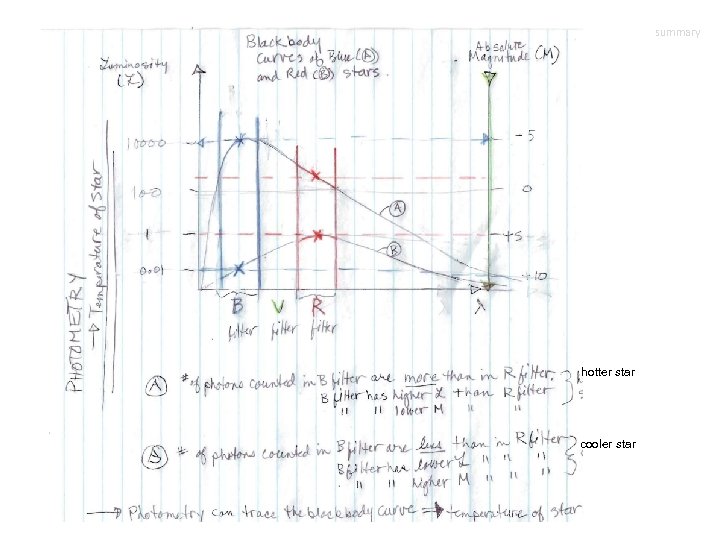 summary
Blackbody
curves of Blue (A)
and Red (B) stars.
Luminosity
(L)
Absolute
Magnitude (M)
10000
-5
100
0
1
+5
0.01
+10
A
B
B V R λ
filter filter filter
PHOTOMETRY
→ Temperature of star
A # of photons counted in B filter are more than in R filter.
B filter has higher L than R filter
" " lower M " "
hotter star
B # of photons counted in B filter are less than in R filter
B filter has lower L " " "
" " higher M " " "
cooler star
→ Photometry can trace the blackbody curve ⇒ temperature of star